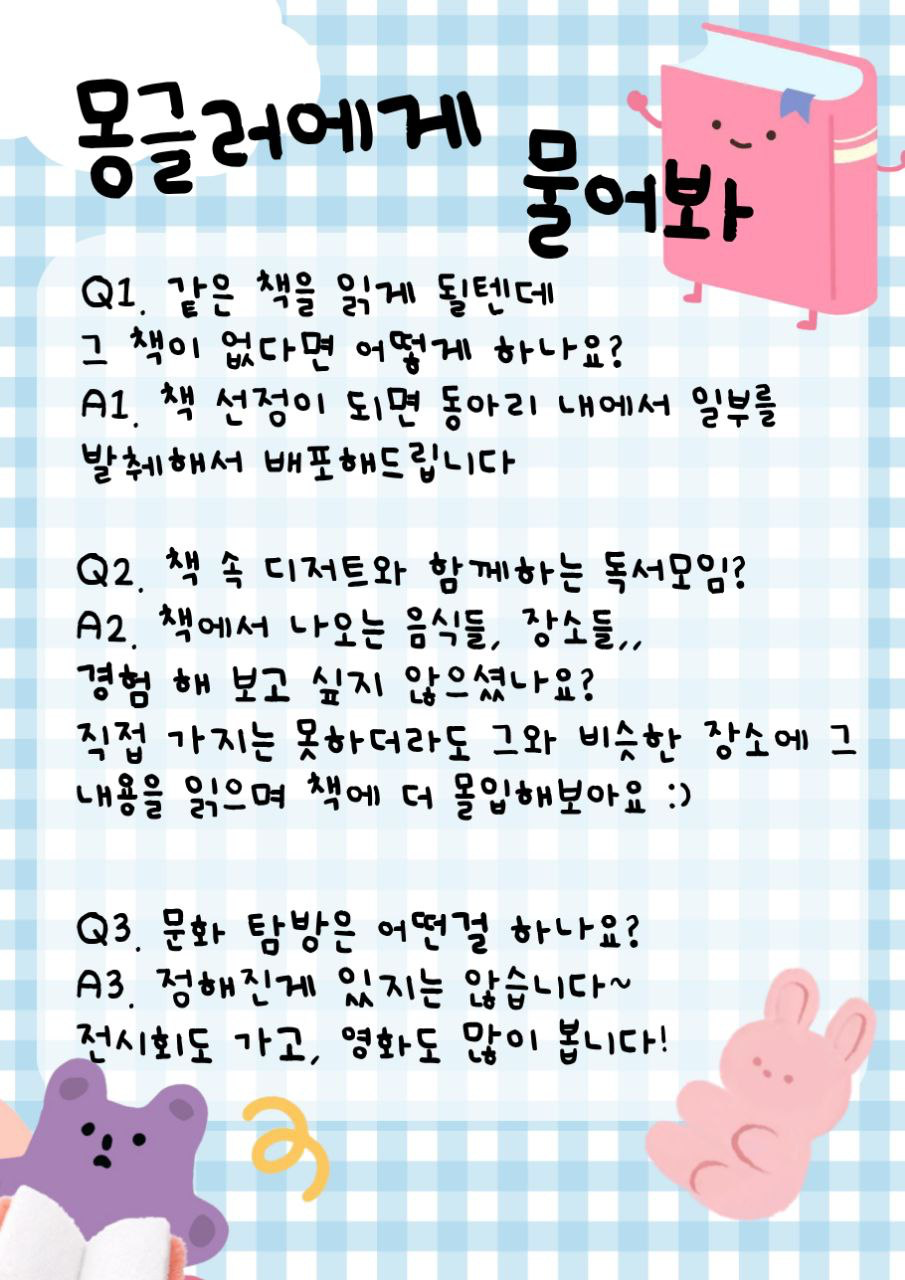 몽글러에게
물어봐
Q1. 같은 책을 읽게 될텐데
그 책이 없다면 어떻게 하나요?
A1. 책 선정이 되면 동아리 내에서 일부를
발췌해서 배포해드립니다
Q2. 책 속 디저트와 함께하는 독서모임?
A2. 책에서 나오는 음식들, 장소들,,
경험 해 보고 싶지 않으셨나요?
직접 가지는 못하더라도 그와 비슷한 장소에 그
내용을 읽으며 책에 더 몰입해보아요 :)
Q3. 문화 탐방은 어떤걸 하나요?
A3. 정해진게 있지는 않습니다~
전시회도 가고, 영화도 많이 봅니다!